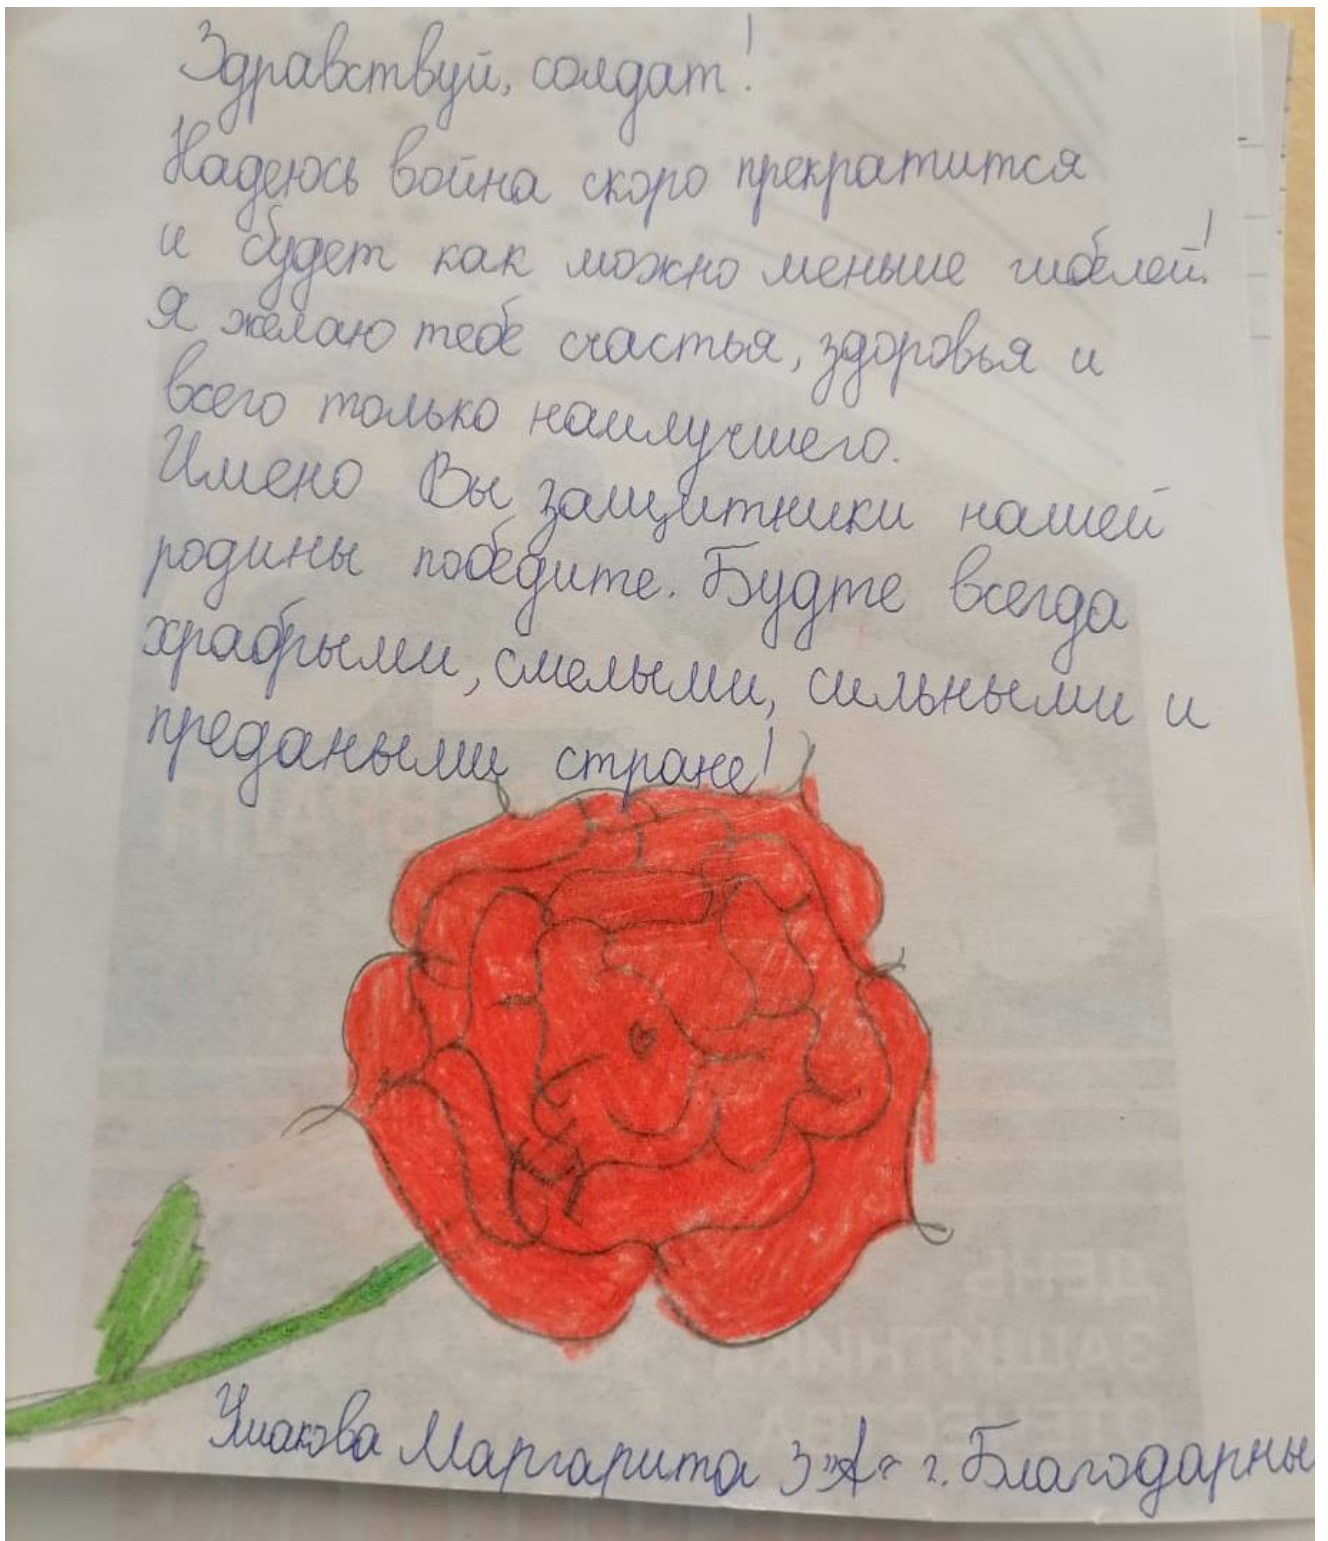 Здравствуй, солдат!
Надеюсь война скоро прекратится
и будет как можно меньше гибелей!
Я желаю тебе счастья, здоровья и
всего только наилучшего.
Имено Вы защитники нашей
родины победите. Будте всегда
храбрыми, смелыми, сильными и
предаными стране!
ДЕНЬ
ЗАЩИТНИКА
ОТЕЧЕСТВА
Ушакова Маргарита 3 "А" г. Благодарны